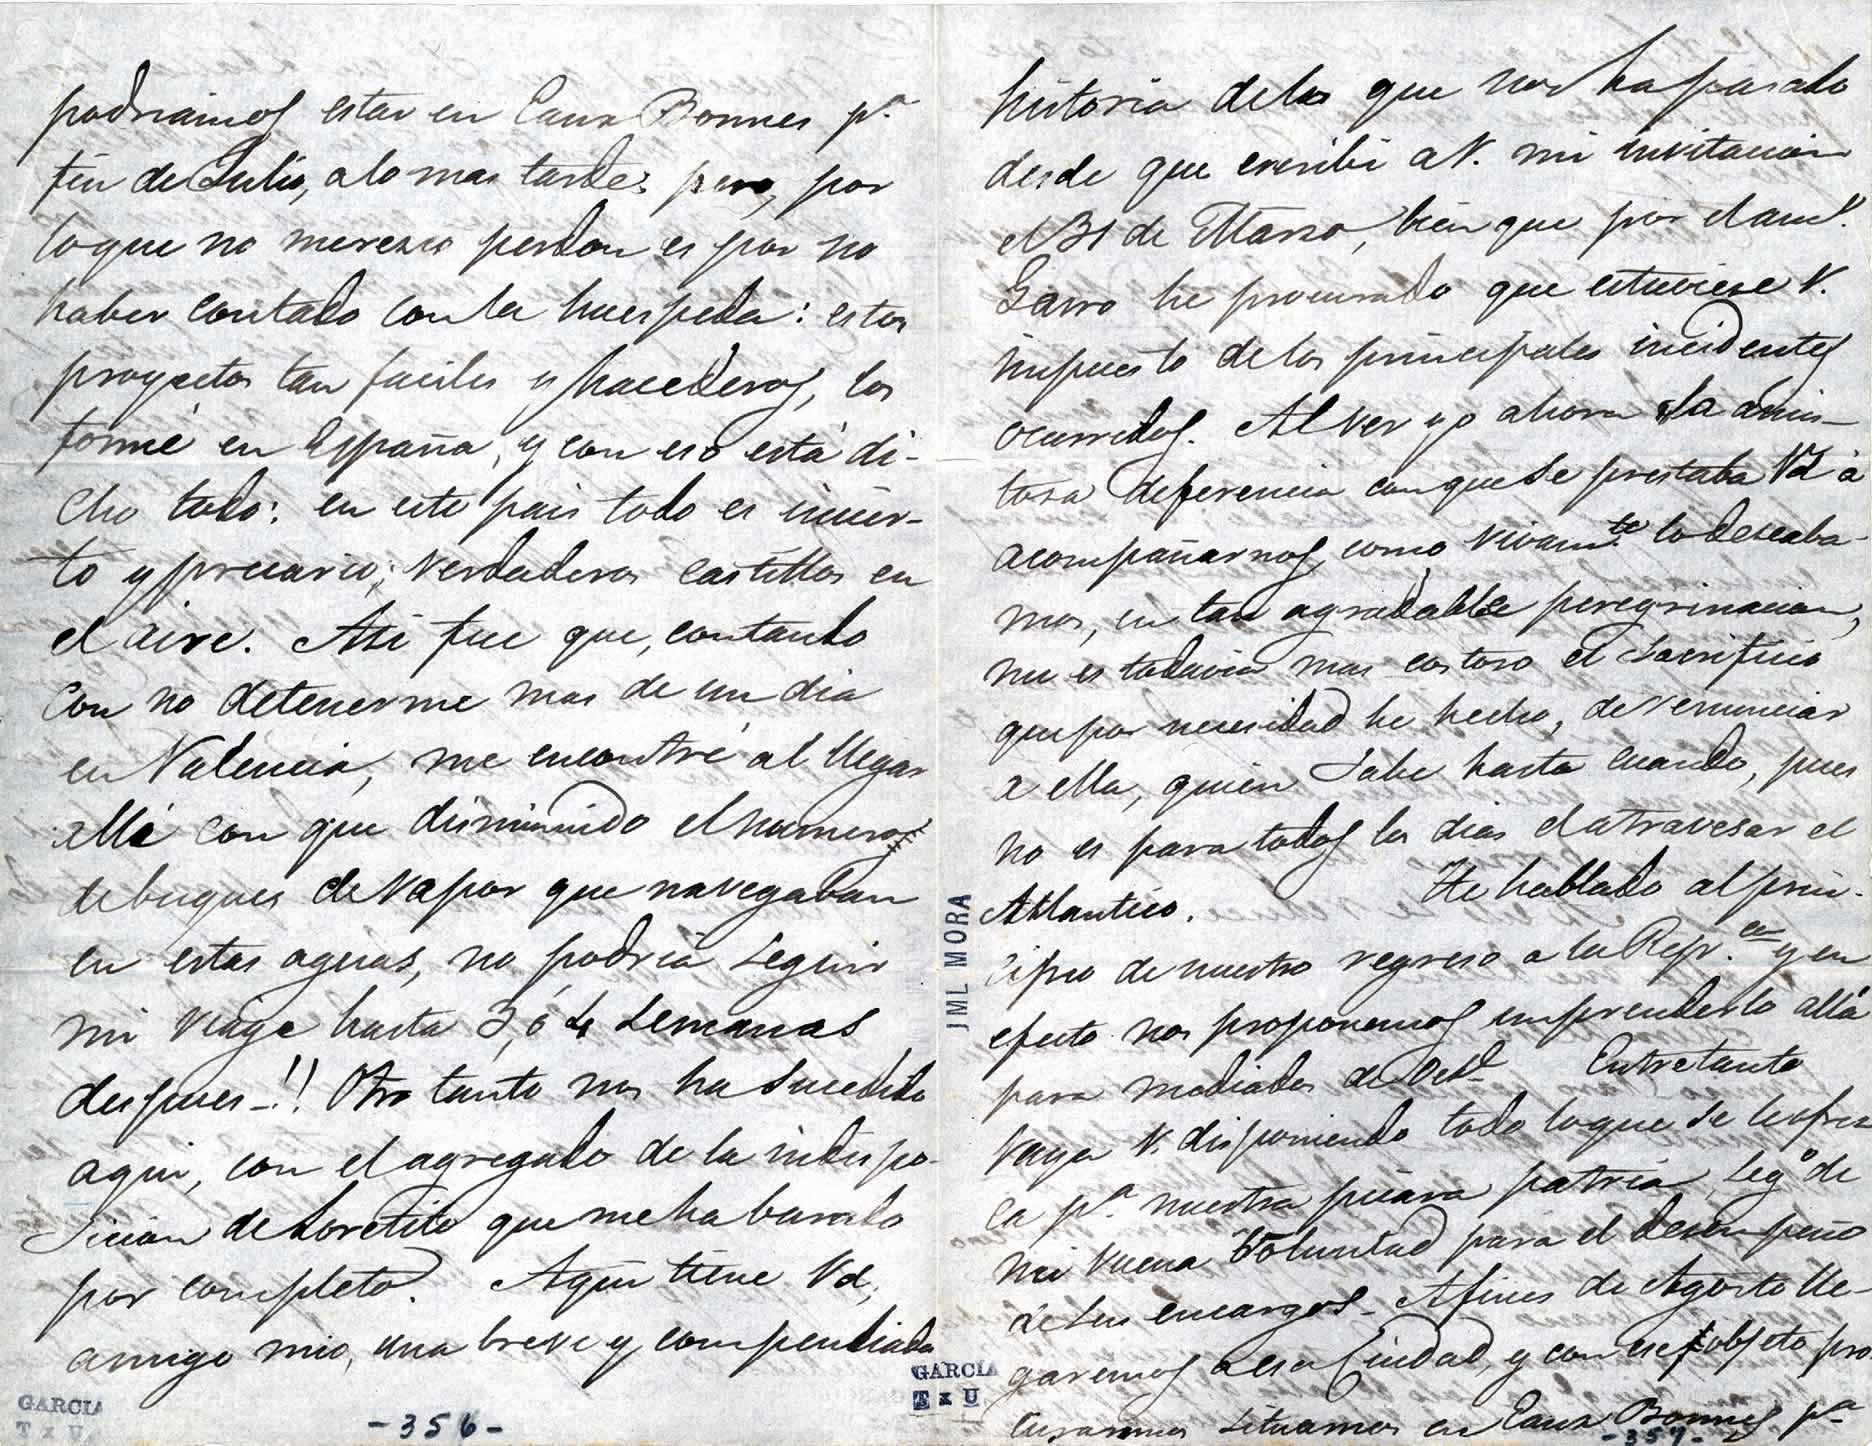 podriamos estar en Eaux Bonnes p.ª
fin de Julio, a lo mas tarde: pero, por
lo que no merezco perdon es por no
haber contado con la huespeda: estos
proyectos tan faciles y hacederos, los
formé en España, y con eso está di-
cho todo: en este pais todo es incier-
to y precario; verdaderos castillos en
el aire. Asi fue que, contando
con no detenerme mas de un dia
en Valencia, me encontré al llegar
allí con que disminuido el numero
de buques de vapor que navegaban
en estas aguas, no podria seguir
mi viage hasta 3, ó 4 semanas
despues_!! Otro tanto nos ha sucedido
aqui, con el agregado de la indispo-
sicion de Loretito que me ha barado
por completo. Aquí tiene Vd,
amigo mio, una breve y compendiada
GARCIA
T x U
-356-
historia de los que nos ha pasado
desde que escribi a V. mi invitacion
el 31 de Marzo, bien que por el am.º
Garro he procurado que estuviese V.
impuesto de los principales incidentes
ocurridos. Al ver yo ahora la amis-
tosa deferencia con que se prestaba Vd á
acompañarnos, como vivam.te lo deseaba-
mos, en tan agradable peregrinacion,
me es todavia mas costoso el sacrificio
que por necesidad he hecho, de renunciar
a ella, quien sabe hasta cuando, pues
no es para todos los dias el atravesar el
Atlantico. He hablado al prin-
cipio de nuestro regreso a la Rep.ca y en
efecto nos proponemos emprenderlo allá
para mediados de Oct.e Entretanto
vaya V. disponiendo todo lo que se le ofrez
ca p.ª nuestra pícara patria, seg.º de
mi buena voluntad para el desempeño
de sus encargos_ A fines de Agosto lle-
garemos a esa Ciudad, y con ese objeto pro
curamos situarnos en Eaux Bonnes p.ª
JML MORA
GARCIA
T x U
-357-